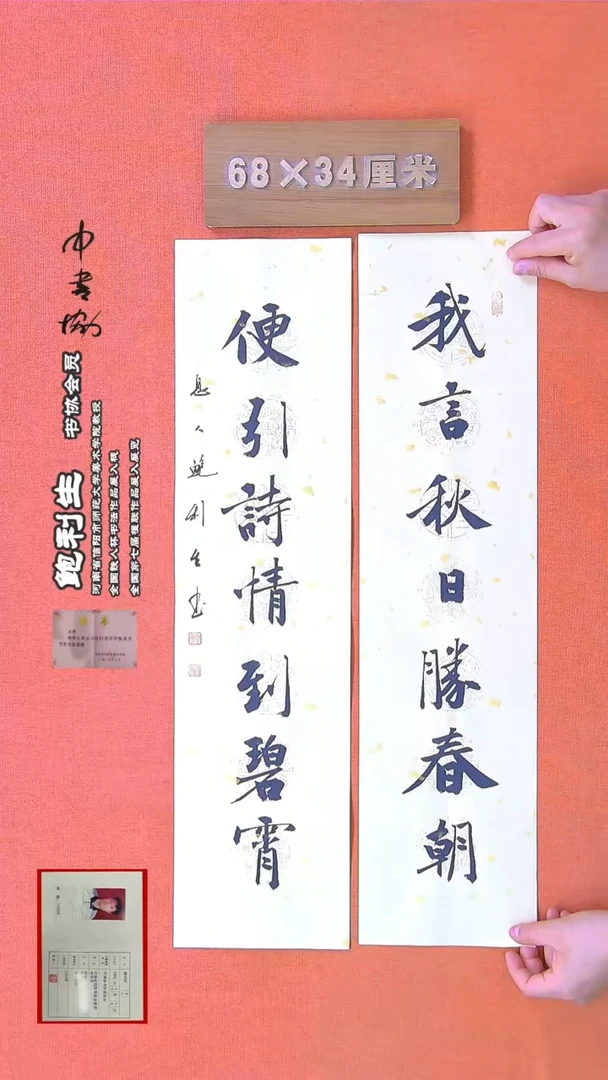 68×34厘米
我言秋日勝春朝
便引詩情到碧霄
息人鮑利生书
中书协
鲍利生 书协会员
河南省信阳市师范大学美术学院教授
全国铁人杯书法作品展入展
全国第七届楹联作品展入展览